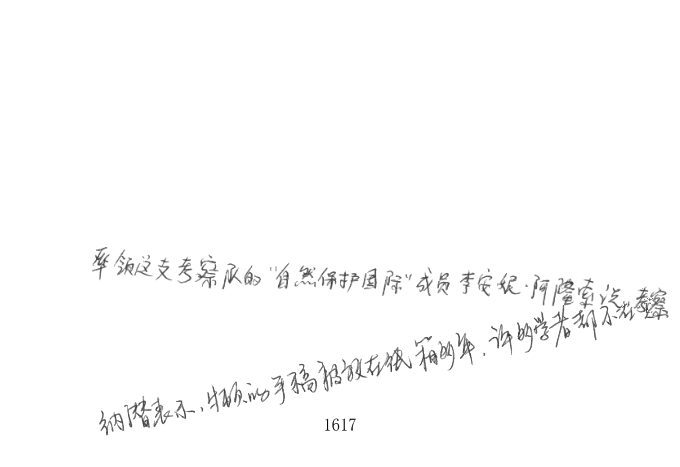 率领这支考察队的"自然保护国际"成员李安妮·阿隆索说,考察
纳潜表示,牛顿的手稿被放在纸箱多年,许多学者都不知
1617